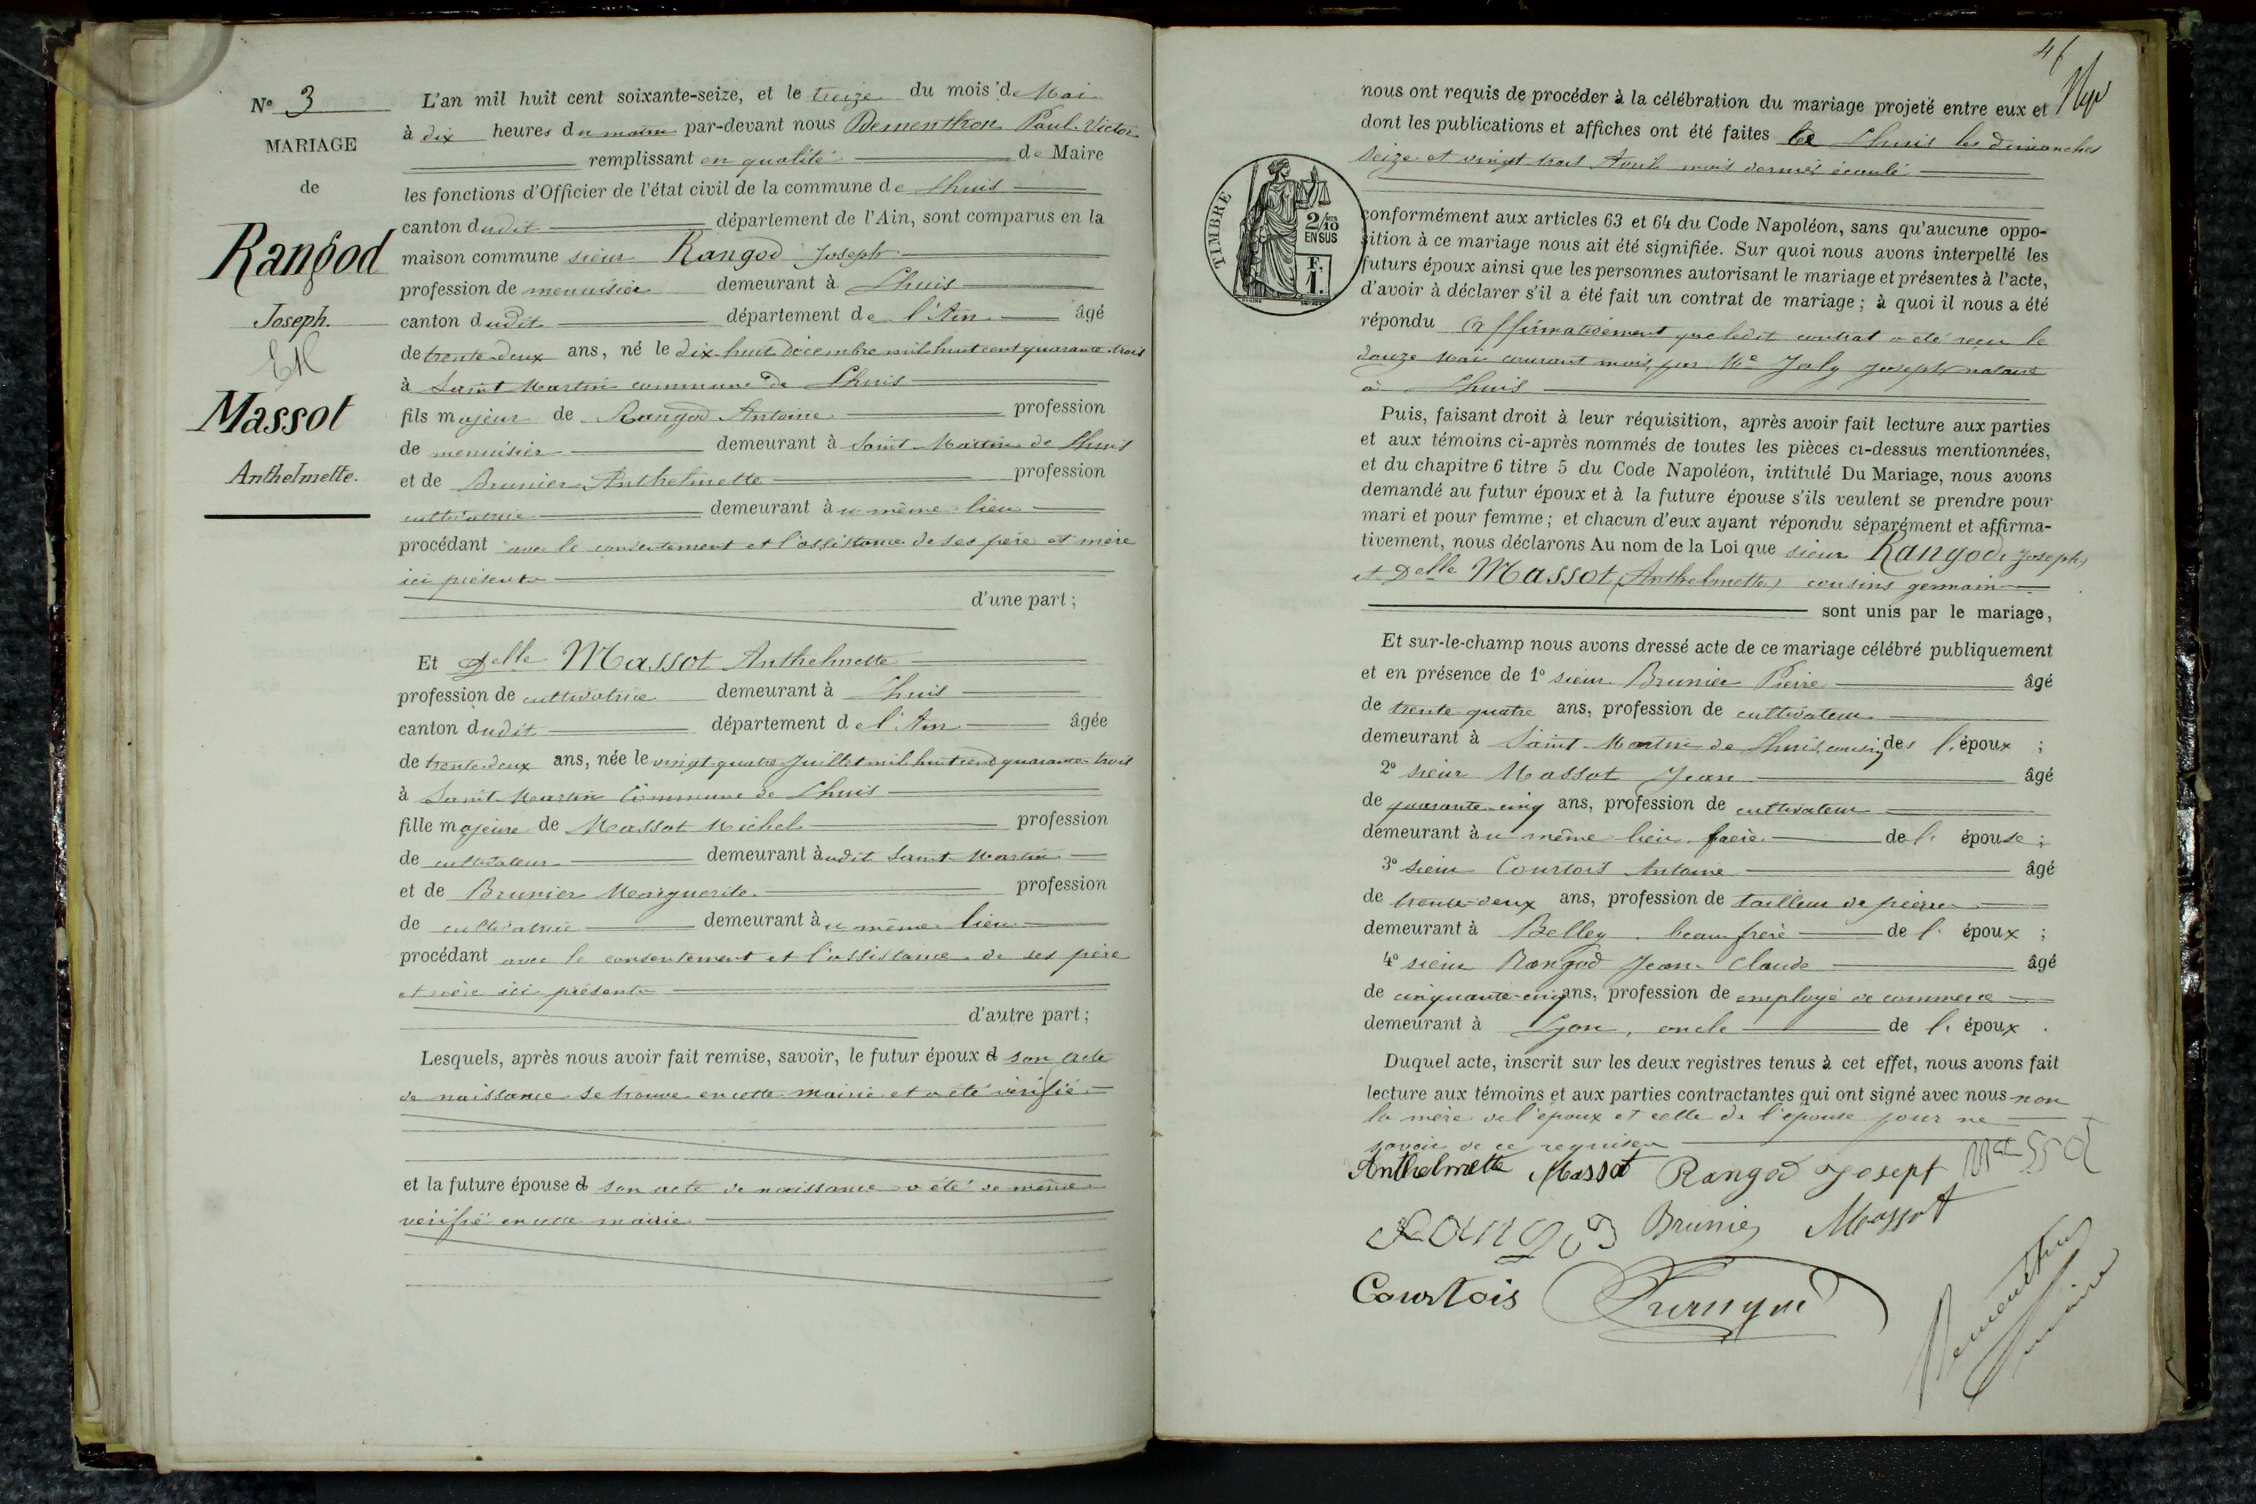 N° 3
MARIAGE
de
Rangod
Joseph.
Et
Massot
Anthelmette.
L'an mil huit cent soixante-seize, et le treize du mois de Mai
à dix heures du matin par-devant nous Dementhon Paul-Victor
remplissant en qualité de Maire
les fonctions d'Officier de l'état civil de la commune de Lhuis
canton dudit département de l'Ain, sont comparus en la
maison commune sieur Rangod Joseph
profession de menuisier demeurant à Lhuis
canton dudit département de l'Ain âgé
de trente-deux ans, né le dix-huit décembre mil huit cent quarante-trois
à Saint Martin commune de Lhuis
fils majeur de Rangod Antoine profession
de menuisier demeurant à Saint Martin de Lhuis
et de Brunier Anthelmette profession
cultivatrice demeurant au même lieu
procédant avec le consentement et l'assistance de ses père et mère
ici présents
d'une part ;
Et Delle Massot Anthelmette
profession de cultivatrice demeurant à Lhuis
canton dudit département de l'Ain âgée
de trente-deux ans, née le vingt quatre Juillet mil huit cent quarante-trois
à Saint Martin Commune de Lhuis
fille majeure de Massot Michel profession
de cultivateur demeurant audit Saint Martin
et de Brunier Marguerite profession
de cultivatrice demeurant au même lieu
procédant avec le consentement et l'assistance de ses père
et mère ici présents
d'autre part ;
Lesquels, après nous avoir fait remise, savoir, le futur époux d son acte
de naissance se trouve en cette mairie et a été vérifié
et la future épouse d son acte de naissance a été de même
vérifié en cette mairie
46
nous ont requis de procéder à la célébration du mariage projeté entre eux et
dont les publications et affiches ont été faites à Lhuis les dimanches
seize et vingt trois Avril mois dernier écoulé
TIMBRE
2/10
EN SUS
F.
1.
conformément aux articles 63 et 64 du Code Napoléon, sans qu'aucune oppo-
sition à ce mariage nous ait été signifiée. Sur quoi nous avons interpellé les
futurs époux ainsi que les personnes autorisant le mariage et présentes à l'acte,
d'avoir à déclarer s'il a été fait un contrat de mariage ; à quoi il nous a été
répondu affirmativement que ledit contrat a été reçu le
douze mai courant mois, par Me Joly Joseph notaire
à Lhuis
Puis, faisant droit à leur réquisition, après avoir fait lecture aux parties
et aux témoins ci-après nommés de toutes les pièces ci-dessus mentionnées,
et du chapitre 6 titre 5 du Code Napoléon, intitulé Du Mariage, nous avons
demandé au futur époux et à la future épouse s'ils veulent se prendre pour
mari et pour femme ; et chacun d'eux ayant répondu séparément et affirma-
tivement, nous déclarons Au nom de la Loi que sieur Rangod Joseph
et Delle Massot Anthelmette cousins germain
sont unis par le mariage,
Et sur-le-champ nous avons dressé acte de ce mariage célébré publiquement
et en présence de 1° sieur Brunier Pierre âgé
de trente quatre ans, profession de cultivateur
demeurant à Saint-Martin de Lhuis, cousin de l'époux ;
2° sieur Massot Jean âgé
de quarante-cinq ans, profession de cultivateur
demeurant au même lieu frère de l' épouse ;
3° sieur Courtois Antoine âgé
de trente-deux ans, profession de tailleur de pierre
demeurant à Belley, beau frère de l' époux ;
4° sieur Rangod Jean-Claude âgé
de cinquante-cinq ans, profession de employé de commerce
demeurant à Lyon, oncle de l' époux .
Duquel acte, inscrit sur les deux registres tenus à cet effet, nous avons fait
lecture aux témoins et aux parties contractantes qui ont signé avec nous non
la mère de l'époux et celle de l'épouse pour ne
savoir de ce requises
Anthelmette Massot Rangod Josept Massot
Rangod Brunier Massot
Courtois
Dementhon
maire